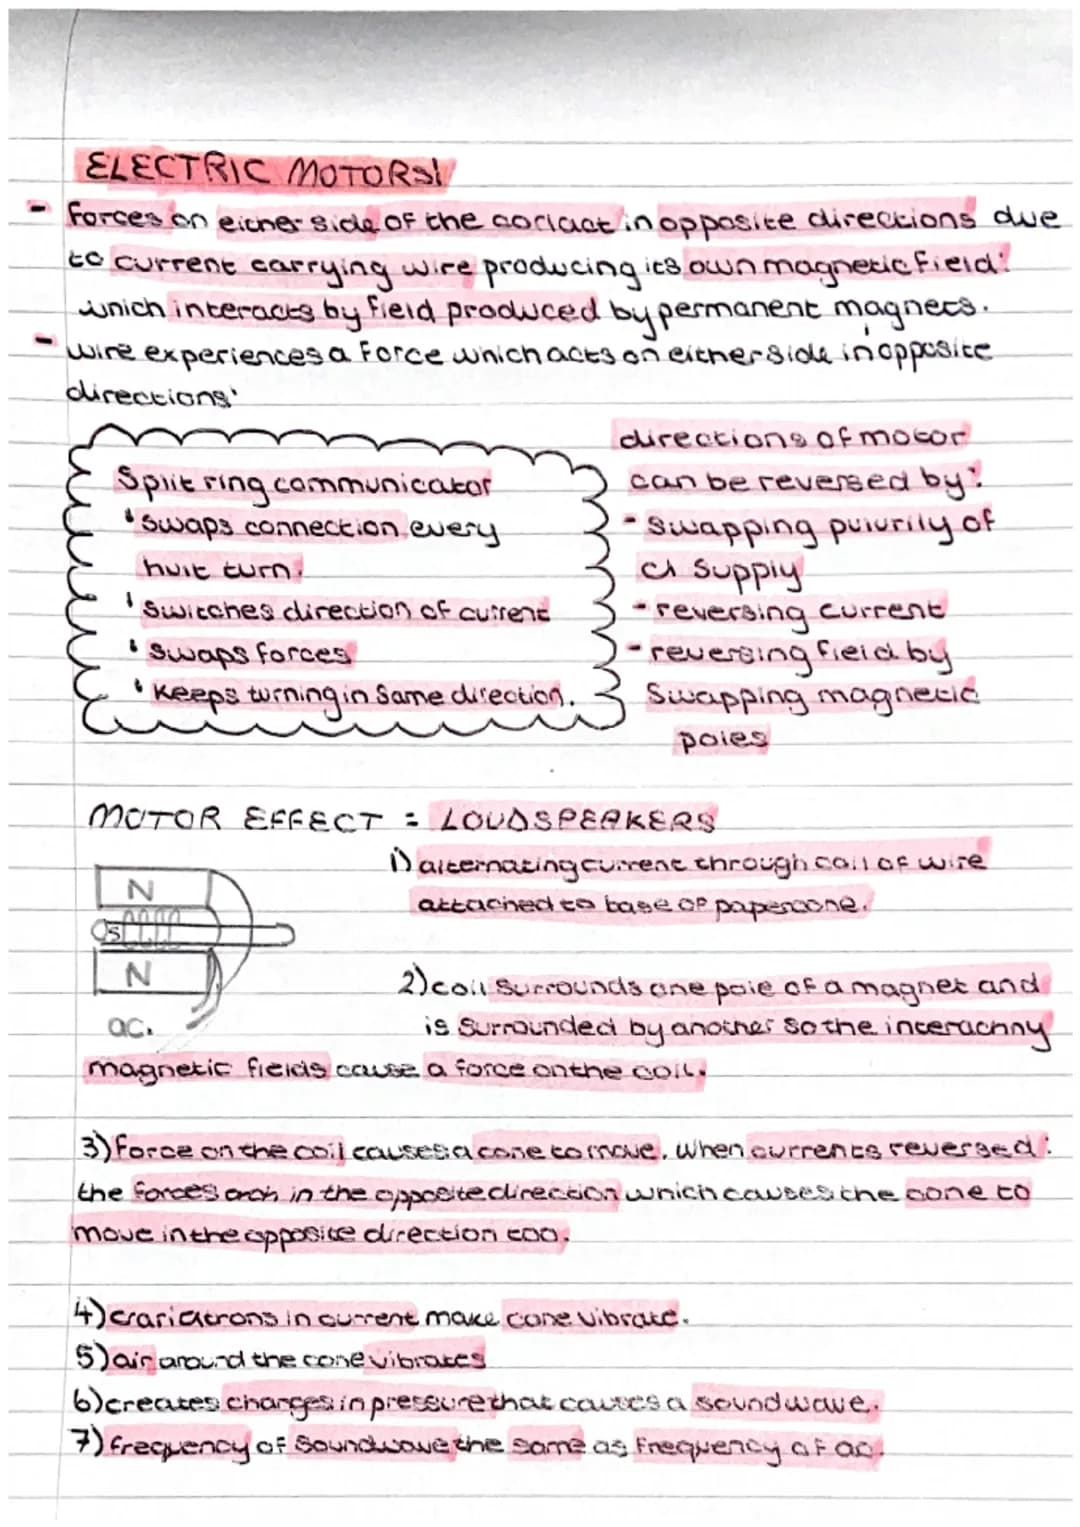 ELECTRIC MOTORS!
- forces on either side of the coil act in opposite directions due
to current carrying wire producing its own magnetic field:
which interacts by field produced by permanent magnets.
- wire experiences a force which acts on either side in opposite
directions:
Split ring communicator
' swaps connection every
half turn.
' switches direction of current
' swaps forces
' keeps turning in same direction.
directions of motor
can be reversed by:
- swapping polarity of
supply
- reversing current
- reversing field by
swapping magnetic
poles
MOTOR EFFECT = LOUDSPEAKERS
N
S
N
ac.
1) alternating current through coil of wire
attached to base of papercone.
2) coil surrounds one pole of a magnet and
is surrounded by another so the interacting
magnetic fields cause a force on the coil.
3) force on the coil causes a cone to move. When currents reversed:
the forces in the opposite direction which causes the cone to
move in the opposite direction too.
4) in current make cone vibrate.
5) air around the cone vibrates
6) creates changes in pressure that causes a soundwave.
7) frequency of soundwave the same as frequency of ac.